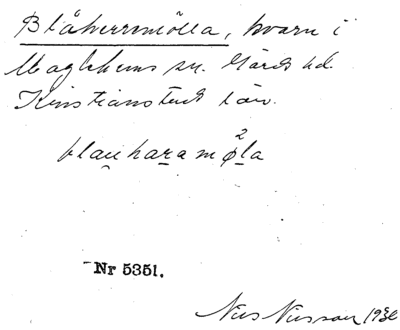 Blåherremölla, kvarn i
Maglehems sn. Gärds hd.
Kristianstads län.
blau̯haramø²la
Nr 5351.
Nils Nilsson